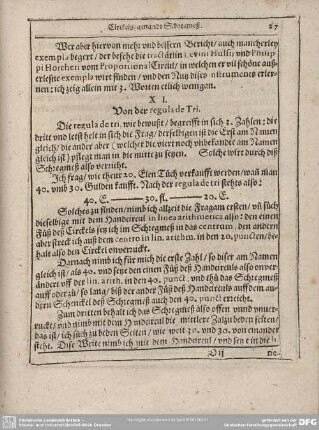 Circkels/ genandt Schregmeß. 27
Wer aber hiervon mehr vnd bessern Bericht/ auch mancherley
exempla begert/ der besehe die tractätlin Levini Hulsii vnd Philip
pi Horchen vom Proportional Circkel/ in welchen er vil schöne auß
erlesne exempla wirt finden/ vnd den Nutz dises instruments erler-
nen: ich zeig allein mit 3. Worten etlich wenigan.
XI.
Von der regula de Tri.
Die regula de tri, wie bewußt/ begreifft in sich 3. Zahlen: die
dritt vnd letst helt in sich die Frag/ derselbigen ist die Erst am Namen
gleich/ die ander aber (welcher die viert noch vnbekandte am Namen
gleich ist) pflegt man in die mitte zu setzen. Solche wirt durch diß
Schregmeß also verricht.
Ich frag/ wie theur 20. Elen Tuch verkaufft werden/ wañ man
40. vmb 30. Gulden kaufft. Nach der regula de tri stehts also:
40. E. —— 30. fl. —— 20. E.
Solches zu finden/ nimb ich allzeit die Fragam ersten/ vñ such
dieselbige mit dem Handzirckel in linea arithmetica also: den einen
Fuß deß Circkels setz ich im Schregmeß in das centrum, den andern
aber streck ich auß dem centro in lin. arithm. in den 20. puncten/ be-
halt also den Circkel ohverruckt.
Darnach nimb ich für mich die erste Zahl/ so diser am Namen
gleich ist/ als 40. vnd setz den einen Fuß deß Handzirckels also vnver-
ändert off der lin. arith. in den 40. punct. vnd thu das Schregmeß
auff oder zu/ so lang/ biß der ander Fuß deß Handzirckels auff dem an-
dern Schenckel deß Schregmeß auch den 40. punct erreicht.
Zum dritten behalt ich das Schregmeß also offen vnnd vnver-
ruckt/ vnd nimb mit dem Handzirckel die mittlere Zal zu beden seiten/
das ist/ ich such zu beden Seiten/ wie weit 30. vnd 30. von einander
steht. Dise Weite nimb ich mit dem Handzirckel/ vnd setz in die li-
D ij ne-